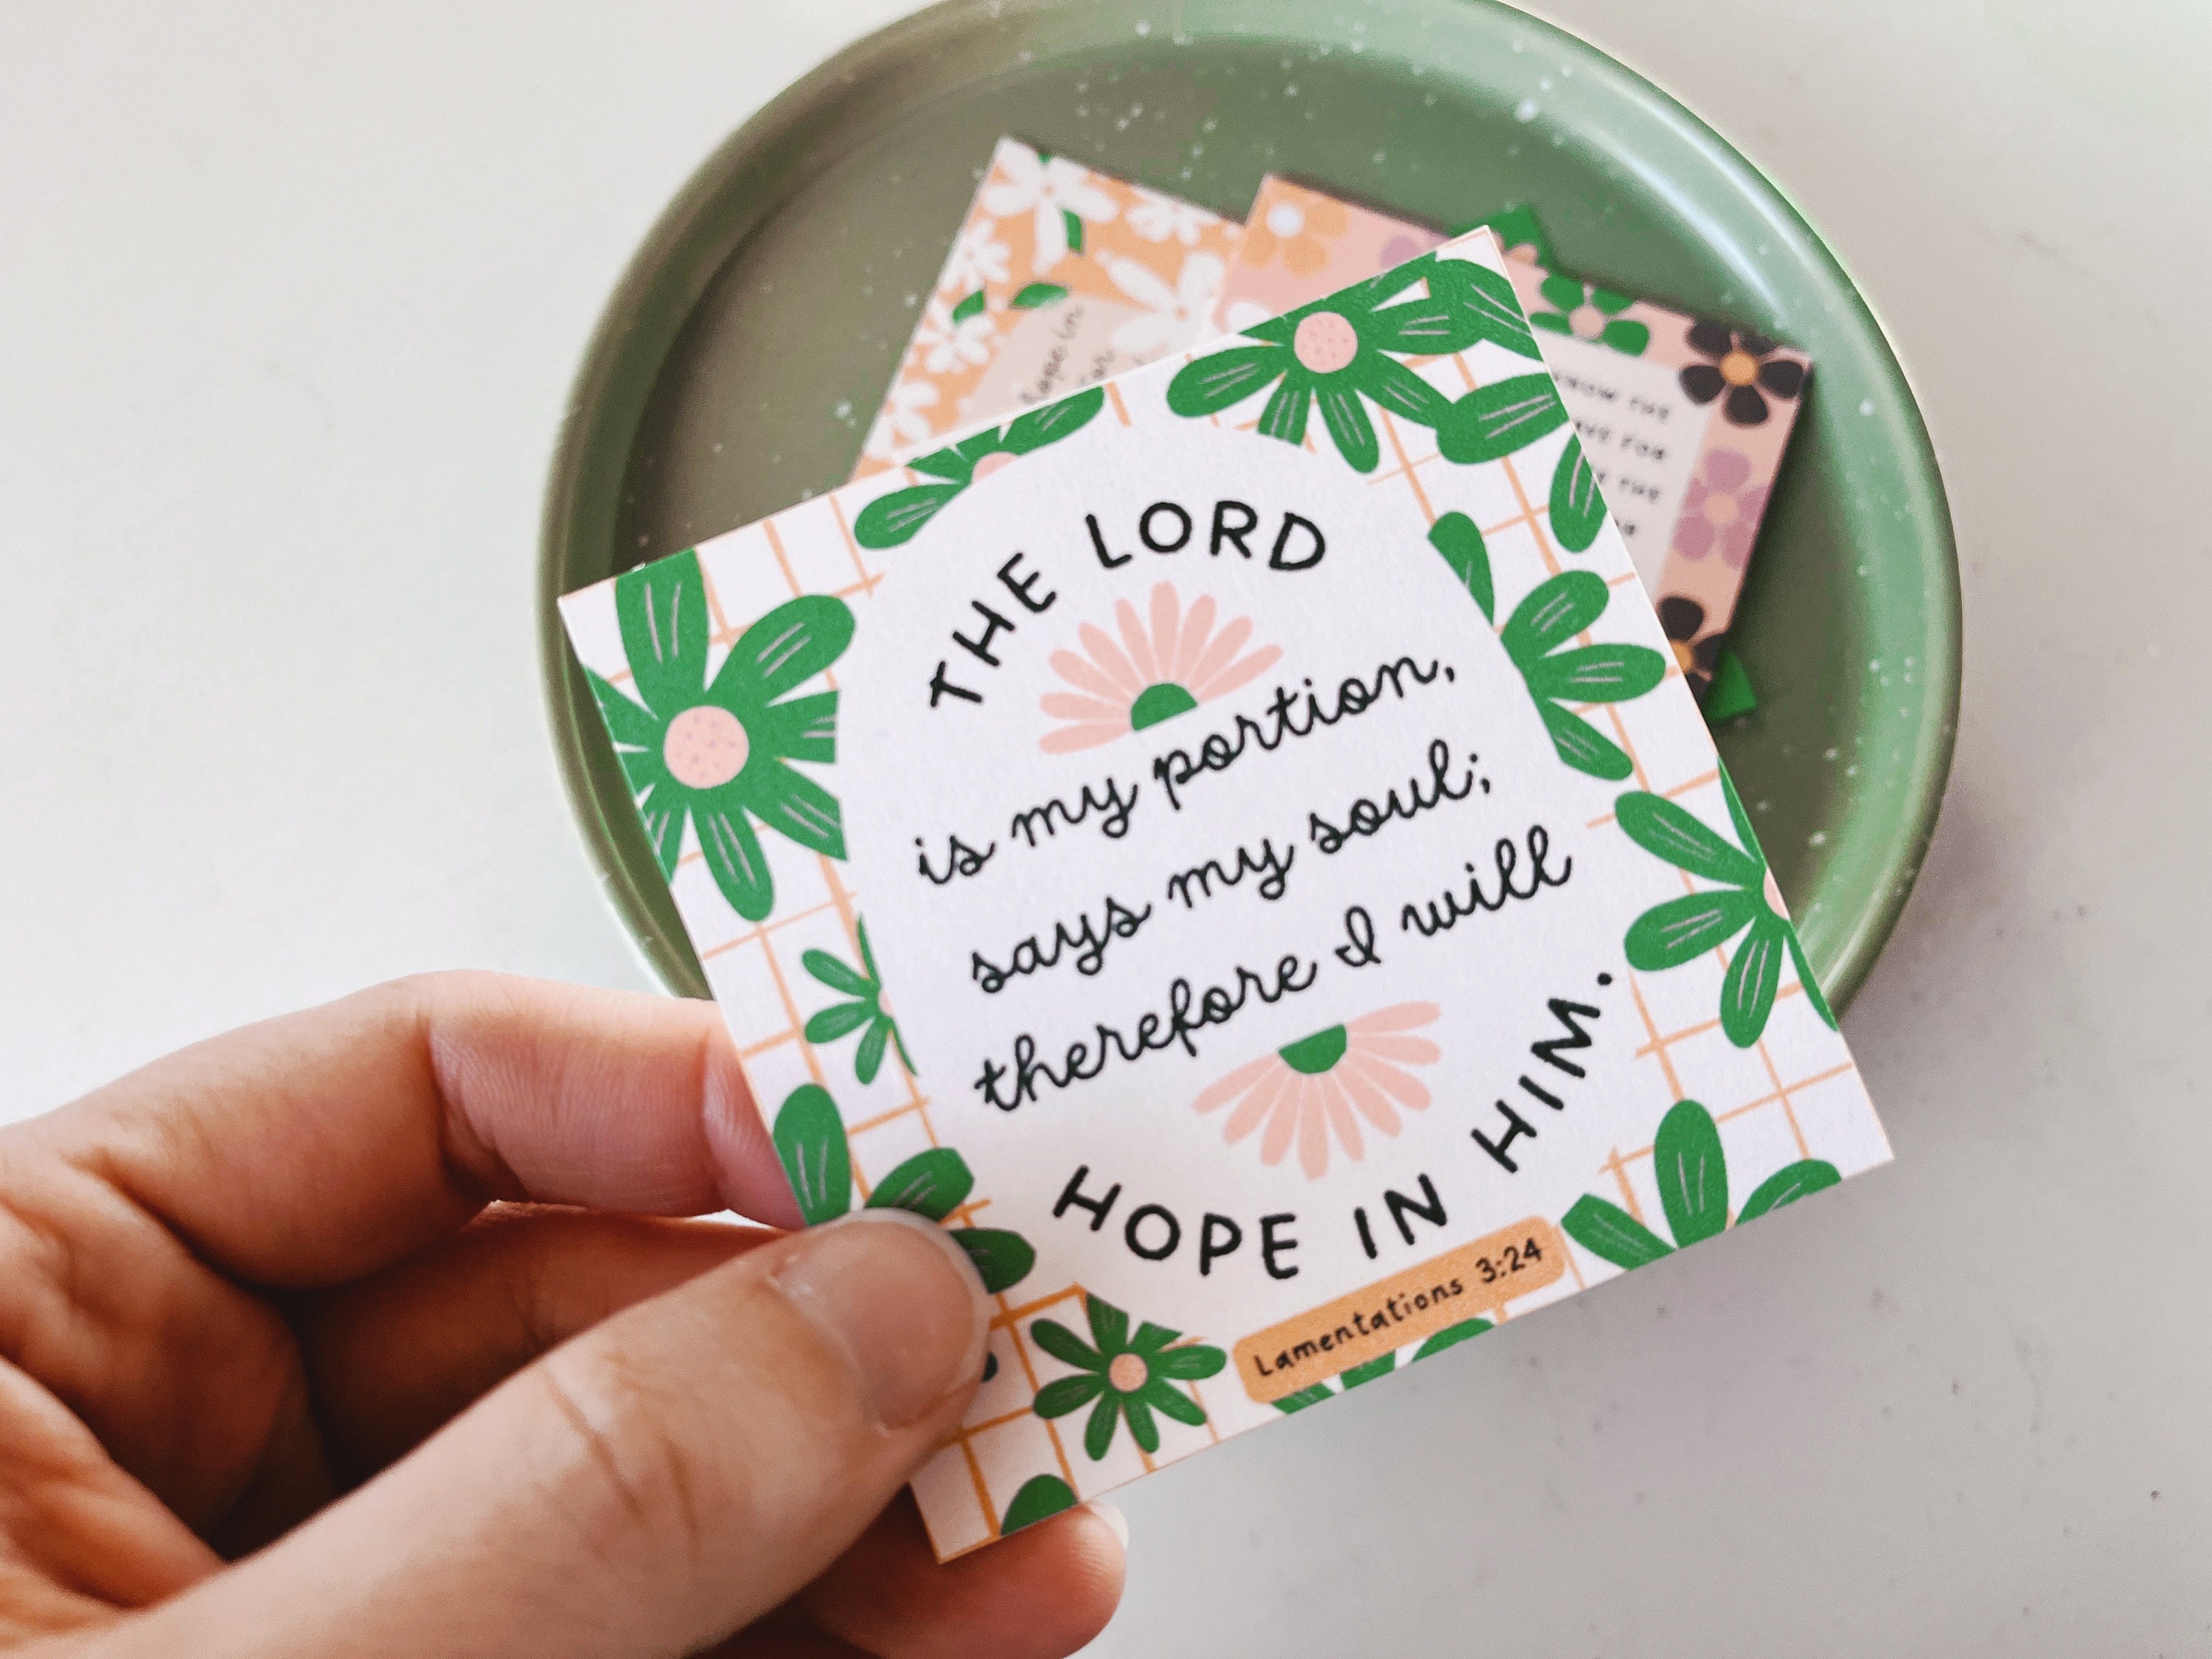 THE LORD
is my portion,
says my soul;
therefore I will
HOPE IN HIM.
Lamentations 3:24
hope in
KNOW THE
FOR
THE